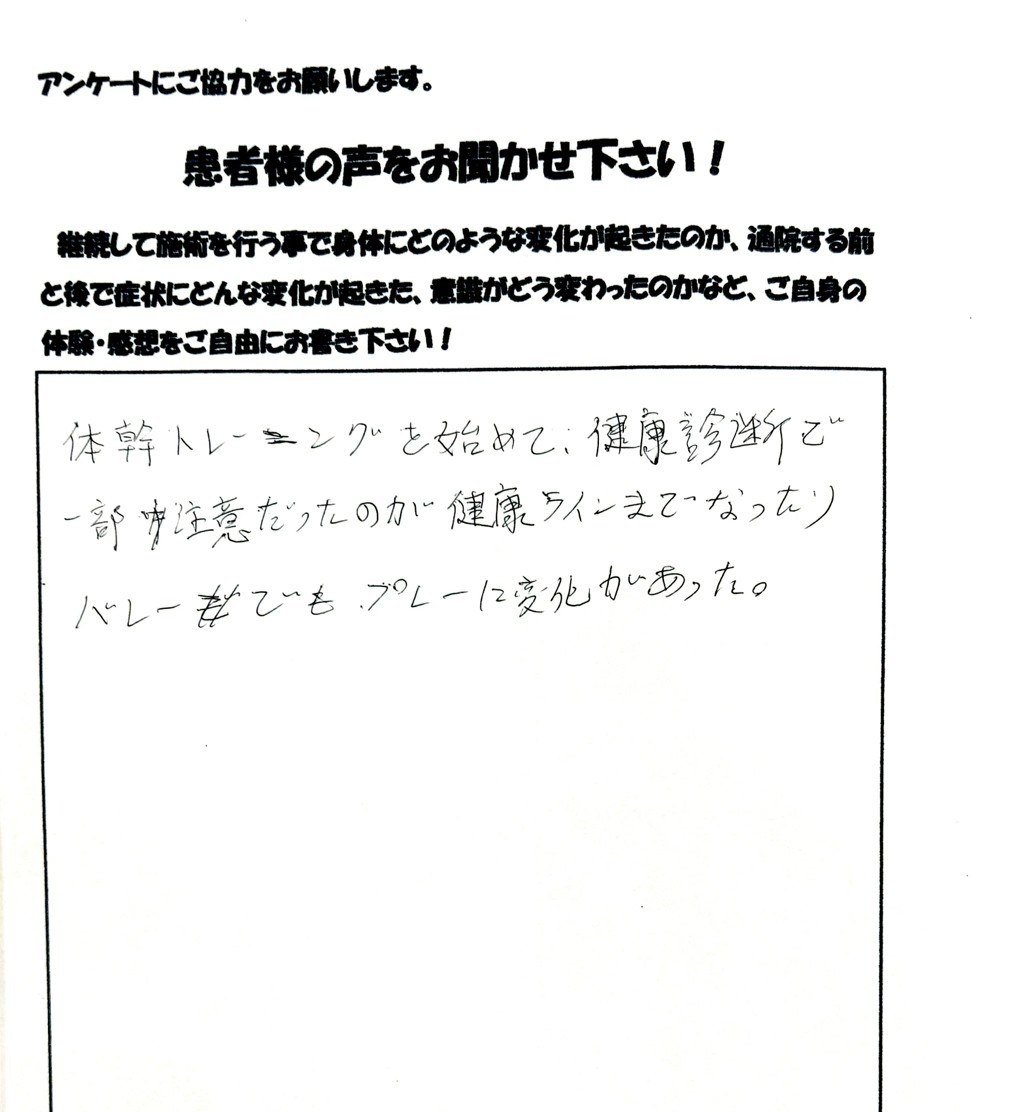 アンケートにご協力をお願いします。
患者様の声をお聞かせ下さい！
継続して施術を行う事で身体にどのような変化が起きたのか、通院する前
と後で症状にどんな変化が起きた、意識がどう変わったのかなど、ご自身の
体験・感想をご自由にお書き下さい！
体幹トレーニングを始めて、健康診断で
一部注意だったのが健康ラインまでなったり
バレーでもプレーに変化があった。